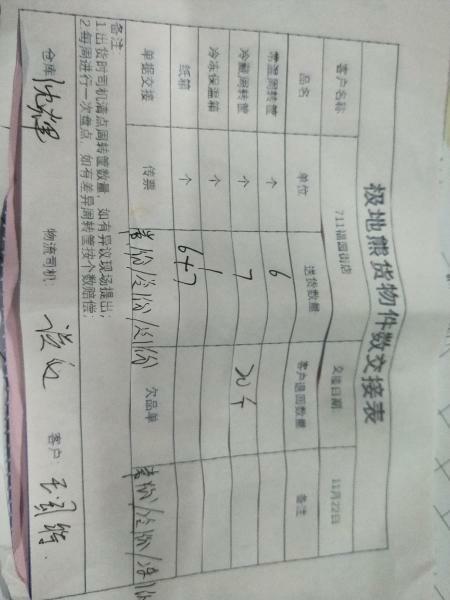 极地熊货物件数交接表
客户名称 711福园街店 交接日期 11月22日
品名 单位 送货数量 客户退回数量 备注
常温周转筐 个 6
冷藏周转筐 个 7 20个
冷冻保温箱 个 1
纸箱 个 6+7
单据交接 传票 欠品单
备注
1出货时司机清点周转筐数量，如有异议现场提出；
2每周进行一次盘点，如有差异周转筐按个数赔偿；
仓库： 物流司机： 客户：